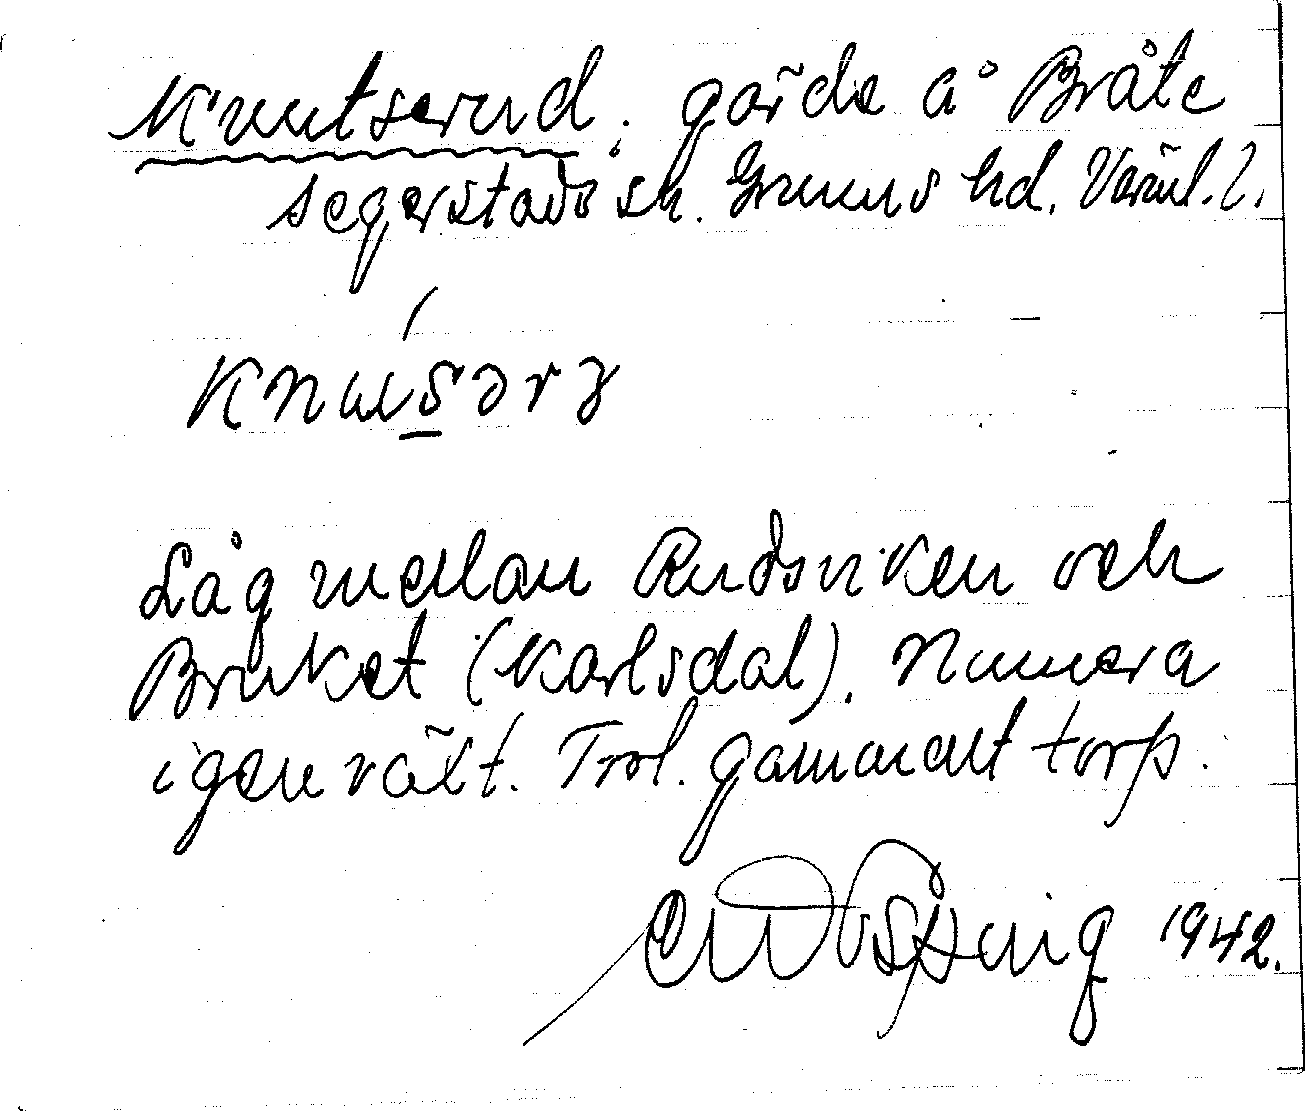 Knutserud, gärde å Bråte
Segerstads sn. Grums hd. Värml. l.
Låg mellan Rudsviken och
Bruket (Karlsdal). Numera
igenväxt. Trol. gammalt torp.
1942.